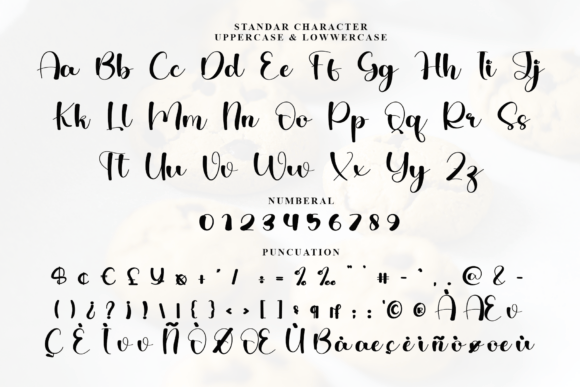 STANDAR CHARACTER
UPPERCASE & LOWWERCASE
Aa Bb Cc Dd Ee Ff Gg Hh Ii Jj
Kk Ll Mm Nn Oo Pp Qq Rr Ss
Tt Uu Vv Ww Xx Yy Zz
NUMBERAL
0 1 2 3 4 5 6 7 8 9
PUNCUATION
$ ¢ € £ ¥ ¤ + ' / ÷ = % ‰ " ` # - ' . , @ & -
( ) ¿ ? ¡ ! \ | { } < > [ ] § ; : ' © ® À Æ
Ç È Ì Ñ Ò Ø Œ Ù ß à æ ç è ì ñ ò ø œ ù